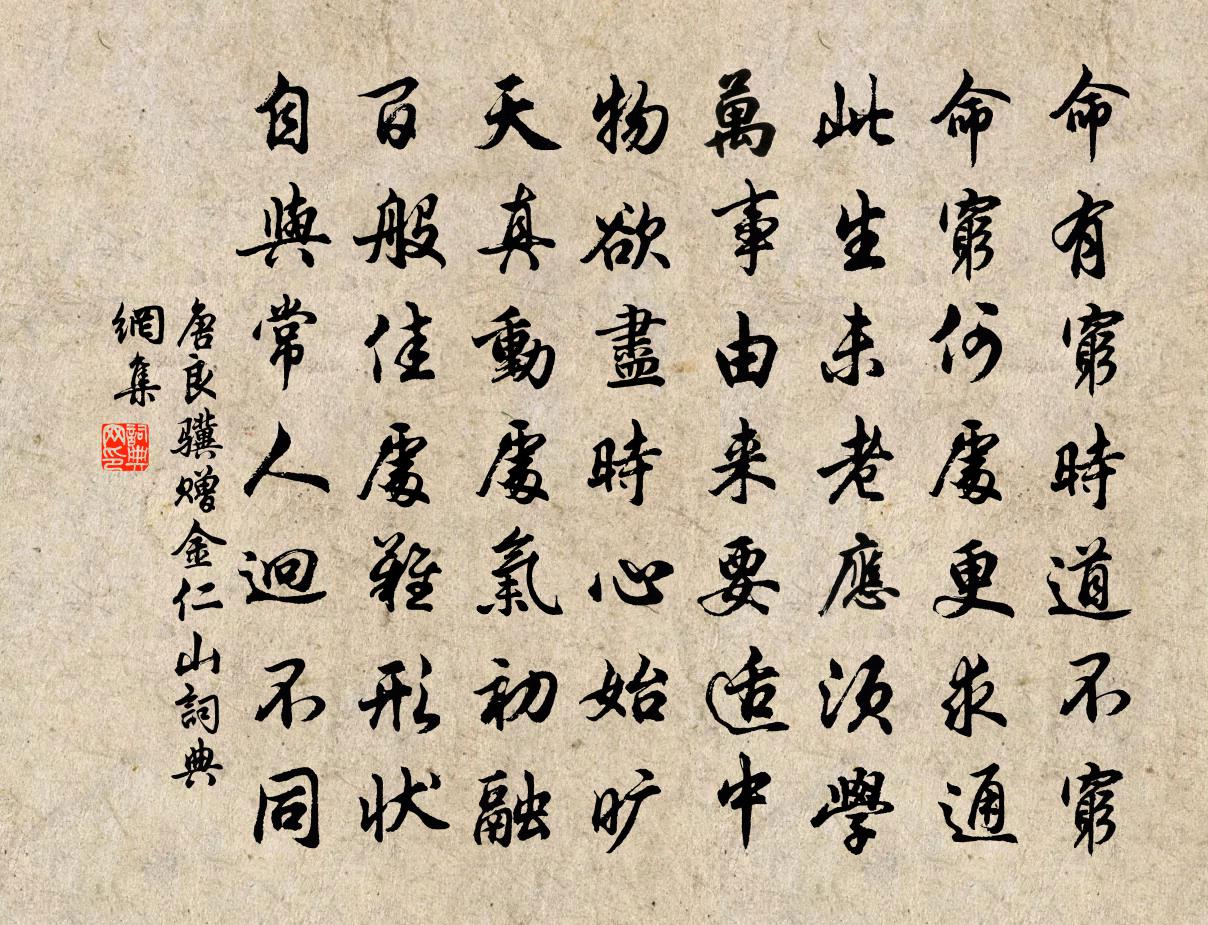 命有窮時道不窮
命窮何處更求通
此生未老應須學
萬事由来要适中
物欲盡時心始旷
天真動處氣初融
百般佳處難形狀
自與常人迥不同
唐良骥赠金仁山詞典
網集
詞典网印